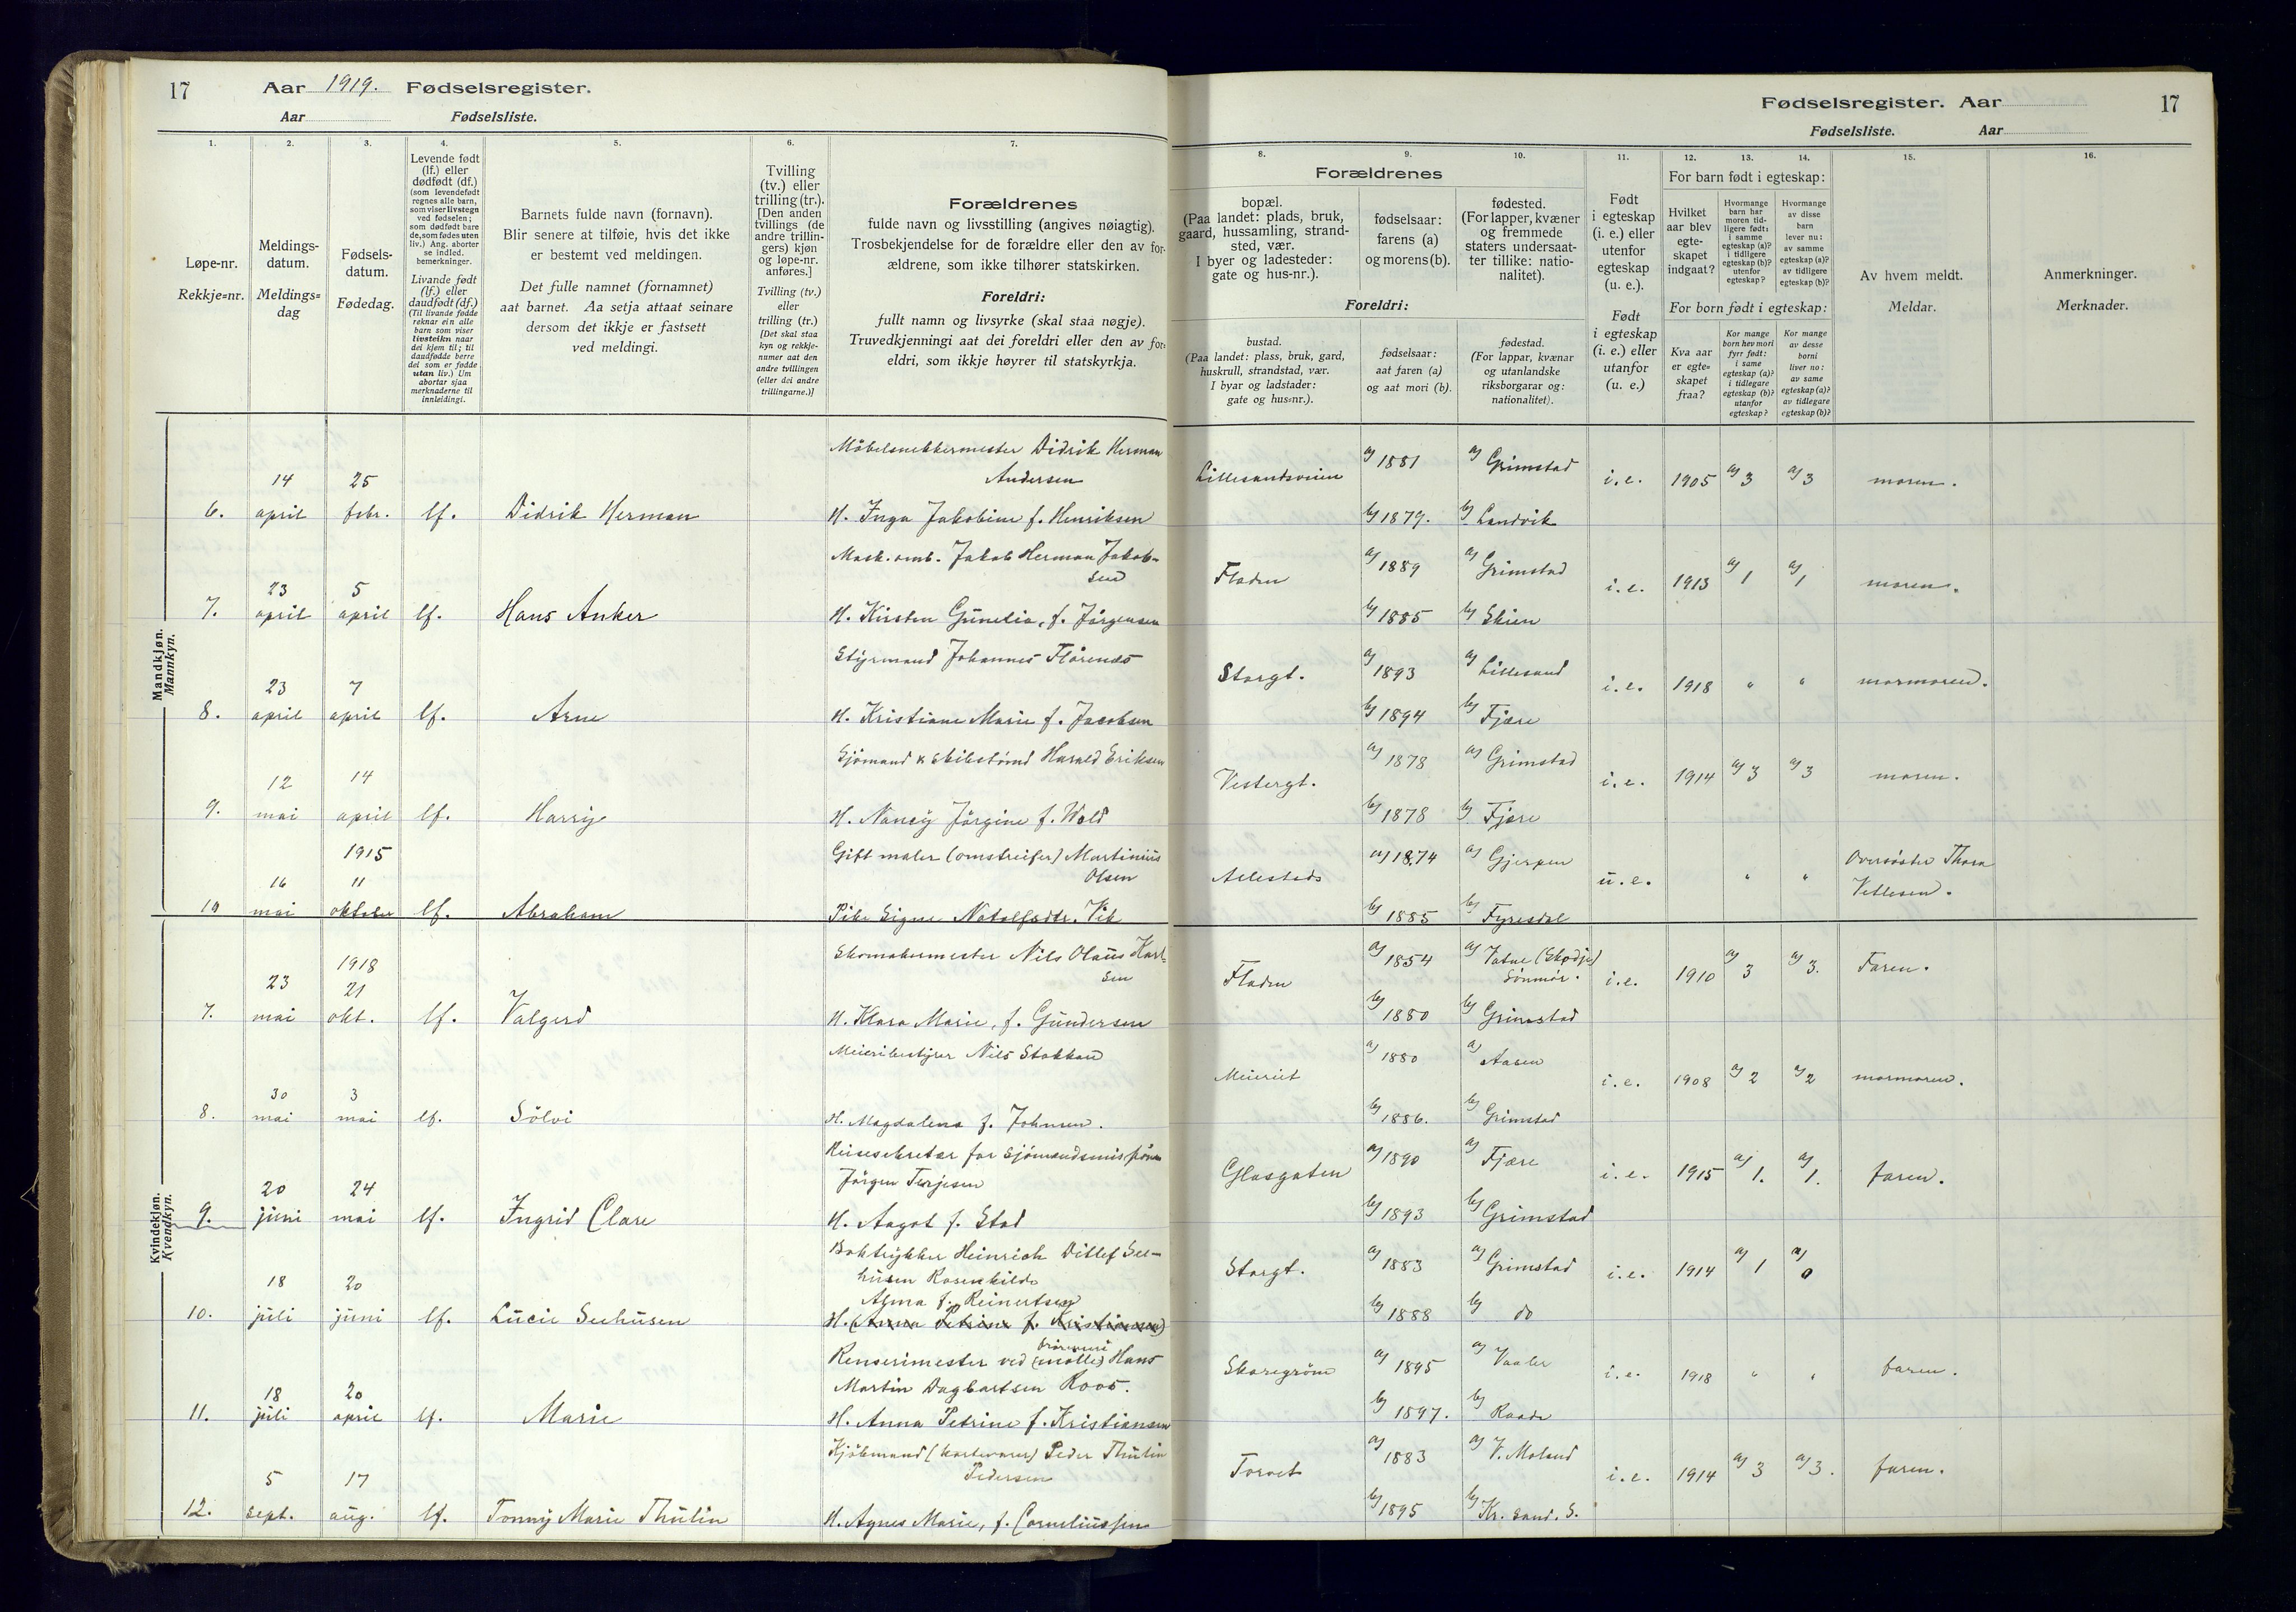 17 Aar 1919. Fødselsregister.
Aar Fødselsliste.
Fødselsregister. Aar 17
Fødselsliste. Aar
1. 2. 3. 4. 5. 6. 7. 8. 9. 10. 11. 12. 13. 14. 15. 16.
Løpe-nr.
Rekkje=nr.
Meldings-
datum.
Meldings=
dag
Fødsels-
datum.
Fødedag.
Levende født
(lf.) eller
dødfødt (df.)
(som levendefødt
regnes alle barn,
som viser livstegn
ved fødselen;
som dødfødt bare
de, som fødes uten
liv.) Ang. aborter
se indled.
bemerkninger.
Livande født
(lf.) eller
daudfødt (df.)
(Til livande fødde
reknar ein alle
barn som viser
livsteikn naar
dei kjem til; til
daudfødde berre
dei som er fødde
utan liv.) Um
abortar sjaa
merknaderne til
innleidingi.
Barnets fulde navn (fornavn).
Blir senere at tilføie, hvis det ikke
er bestemt ved meldingen.
Det fulle namnet (fornamnet)
aat barnet. Aa setja attaat seinare
dersom det ikkje er fastsett
ved meldingi.
Tvilling
(tv.) eller
trilling (tr.).
[Den anden
tvillings (de
andre trillin-
gers) kjøn
og løpe-nr.
anføres.]
Tvilling (tv.)
eller
trilling (tr.)
[Det skal staa
kyn og rekkje-
numer aat den
andre tvillingen
(eller dei andre
trillingarne.)]
Forældrenes
fulde navn og livsstilling (angives nøiagtig).
Trosbekjendelse for de forældre eller den av for-
ældrene, som ikke tilhører statskirken.
Foreldri:
fullt namn og livsyrke (skal staa nøgje).
Truvedkjenningi aat dei foreldri eller den av for=
eldri, som ikkje høyrer til statskyrkja.
Forældrenes
bopæl.
(Paa landet: plads, bruk,
gaard, hussamling, strand-
sted, vær.
I byer og ladesteder:
gate og hus-nr.).
fødselsaar:
farens (a)
og morens (b).
fødested.
(For lapper, kvæner
og fremmede
staters undersaat-
ter tillike: natio-
nalitet).
Foreldri:
bustad.
(Paa landet: plass, bruk, gard,
huskrull, strandstad, vær.
I byar og ladstader:
gate og hus=nr.).
fødselsaar:
aat faren (a)
og aat mori (b).
fødestad.
(For lappar, kvænar
og utanlandske
riksborgarar og:
nationalitet).
Født
i egteskap
(i. e.) eller
utenfor
egteskap
(u. e.).
Født
i egteskap
(i. e.) eller
utanfor
(u. e.)
For barn født i egteskap:
Hvilket
aar blev
egte-
skapet
indgaat?
Hvormange
barn har
moren tid-
ligere født:
i samme
egteskap (a)?
i tidligere
egteskap (b)?
utenfor
egteskap?
Hvormange
av disse
barn
lever nu:
av samme
egteskap (a)?
av tidligere
egteskap (b)?
For born født i egteskap:
Kva aar
er egte=
skapet
fraa?
Kor mange
born hev mori
fyrr født:
i same
egteskap (a)?
i tidlegare
egteskap (b)?
utanfor
egteskap?
Kor mange
av desse
borni
liver no:
av same
egteskap (a)?
av tidlegare
egteskap (b)?
Av hvem meldt.
Meldar.
Anmerkninger.
Merknader.
Mandkjøn.
Mannkyn.
Møbelsnekkermester Didrik Herman
Andersen
Lillesandsveien a) 1881 a) Grimstad i.e. 1905 a) 3 a) 3 moren.
14 25
6. april febr. lf. Didrik Herman H. Inga Jakobine f. Henriksen b) 1879. b) Landvik
Mask. omb. Jakob Herman Jakob-
sen
Fladen a) 1889 a) Grimstad i.e. 1913 a) 1 a) 1 moren.
23 5
7. april april lf. Hans Anker H. Kirsten Gunelia, f. Jørgensen b) 1885 b) Skien
Styrmand Johannes Florenæs
Storgt. a) 1893 a) Lillesand i.e. 1918 " " mormoren.
23 7
8. april april lf. Arne H. Kristiane Marie f. Jacobsen b) 1894 b) Fjære
Sjømand & Harald Eriksen
Vestergt. a) 1878 a) Grimstad i.e. 1914 a) 3 a) 3 moren.
12 14
9. mai april lf. Harry H. Nancy Jørgine f. Wold b) 1878 b) Fjære
1915
Gift maler (omstreifer) Martinius
Olsen
a) 1874 a) Gjerpen u.e. " " Oversøster Thora
Vetlesen.
16 11
10 mai oktober lf. Abraham Pike Signe Notolfsdtr. Vik b) 1885 b) Fyresdal
Kvindekjøn.
Kvendkyn.
Skomakermester Nils Olaus Karl-
sen
Fladen a) 1854 a) Vatne (Skodje)
Sønmør. i.e. 1910 a) 3 a) 3. Faren.
1918
23 21
7. mai okt. lf. Valgerd H. Klara Marie, f. Gundersen b) 1880 b) Grimstad
Meieribestyrer Nils Stokkan
Meieriet a) 1880 a) Aasen i.e. 1908 a) 2 a) 2 mormoren.
30 3
8. mai mai lf. Sölvi H. Magdalena f. Johnsen. b) 1886. b) Grimstad
Reisesekretær for Sjømandsmissjonen
Jörgen Terjesen
Glasgaten a) 1890 a) Fjære i.e. 1915 a) 1. a) 1. faren.
20 24
9. juni mai lf. Ingrid Clare H. Aagot f. Stad b) 1893 b) Grimstad
Boktrykker Heinrich Ditlef See-
husen Rosenkilde
Storgt. a) 1883 a) Grimstad i.e. 1914 a) 1 a) 0
18 20
Alma f. Reinertsen
10. juli juni lf. Lucie Seehusen H. (Anna Petrine f. Kristiansen) b) 1888 b) do
Renserimester ved (mølle) Hans
Martin Dagbartsen Roos.
Skaregrøm a) 1895 a) Vaaler i.e. 1918 " " faren.
18 20
11. juli april lf. Marie H. Anna Petrine f. Kristiansen b) 1897. b) Raade
Kjøbmand (kortevarer) Peder Thulin
Pedersen
Torvet a) 1883 a) V. Moland i.e. 1914 a) 3 a) 3. faren.
5 17
12. sept. aug. lf. Tonny Marie Thulin H. Agnes Marie, f. Corneliussen b) 1895 b) Kr. sand. S.